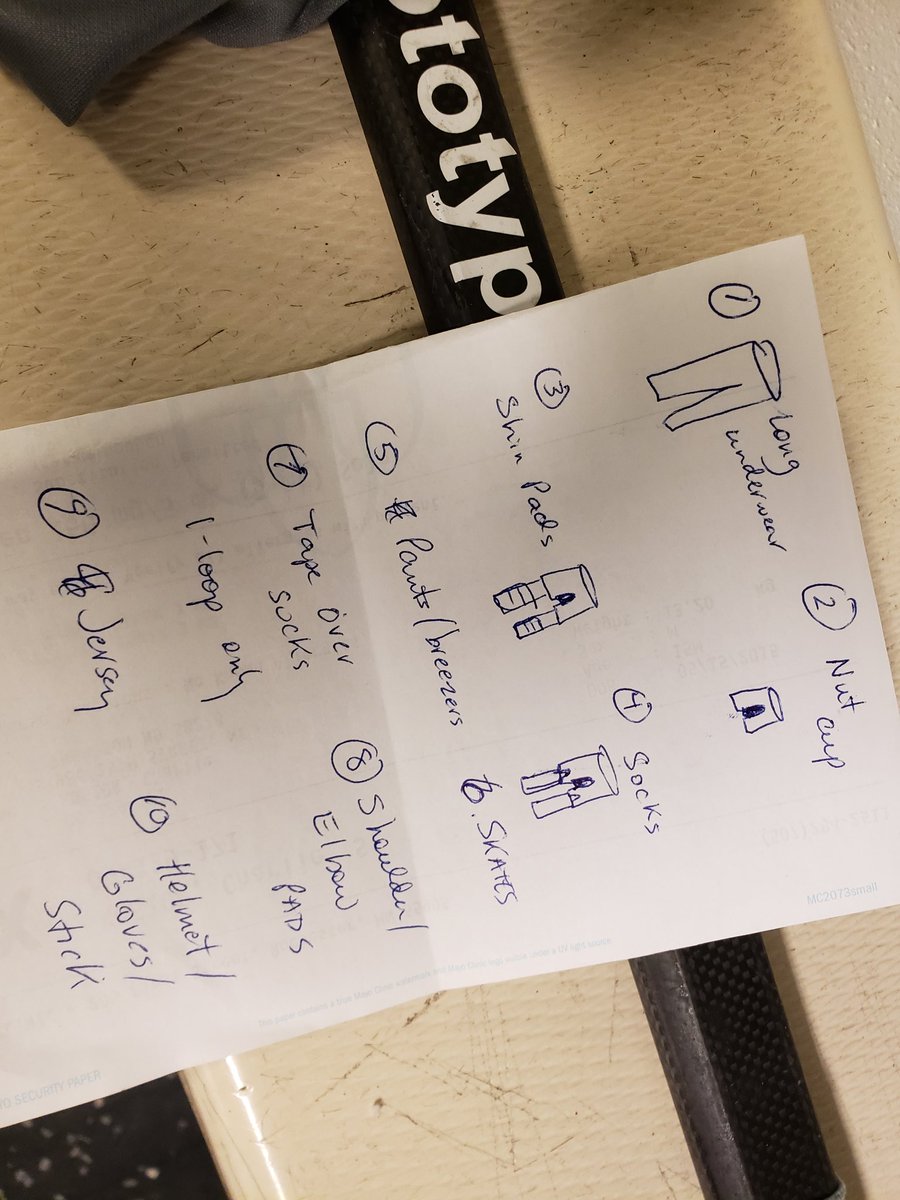 ototyp
① Long
underwear
② Nut
cup
③
Shin Pads
④ Socks
⑤ Pants/breezers
6. SKATES
⑦ Tape over
socks
1-loop only
⑧ Shoulder/
Elbow
PADS
⑨ Jersey
⑩ Helmet/
Gloves/
Stick
MC2073small
This paper contains a true Mayo Clinic watermark and Mayo Clinic logo visible under a UV light source
YO SECURITY PAPER